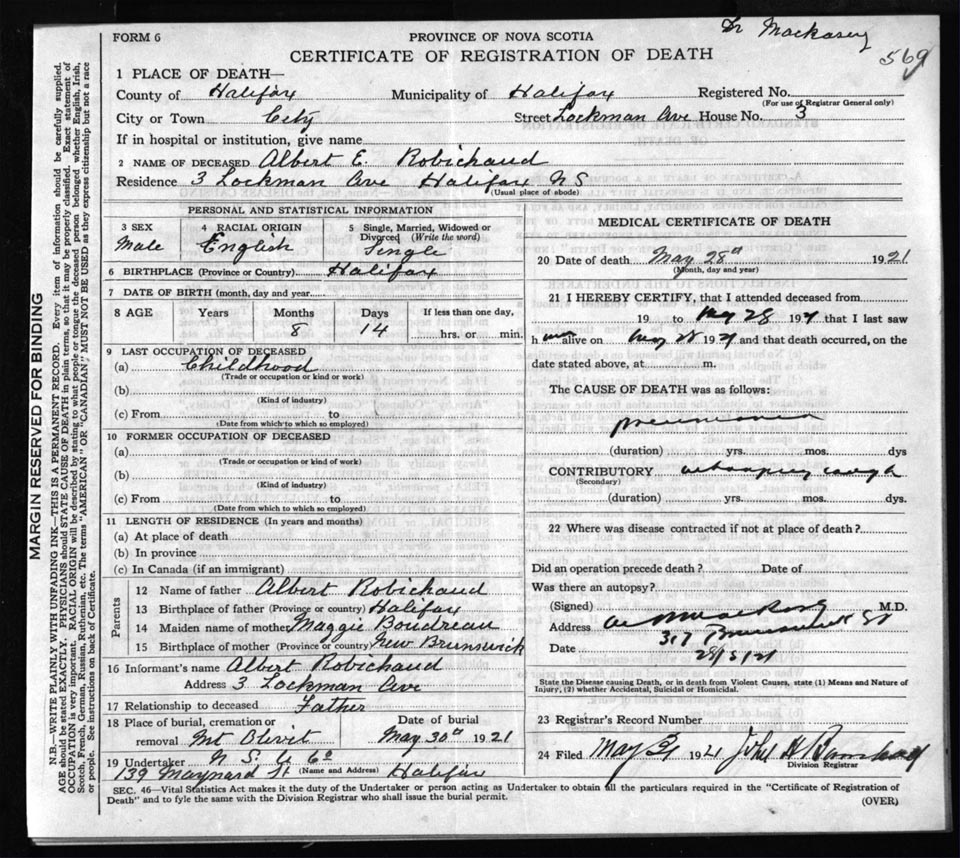 Dr Mackasey
569
FORM 6
PROVINCE OF NOVA SCOTIA
CERTIFICATE OF REGISTRATION OF DEATH
MARGIN RESERVED FOR BINDING
N.B.—WRITE PLAINLY WITH UNFADING INK—THIS IS A PERMANENT RECORD. Every item of information should be carefully supplied.
AGE should be stated EXACTLY. PHYSICIANS should STATE CAUSE OF DEATH in plain terms, so that it may be properly classified. Exact statement of
OCCUPATION is very important. RACIAL ORIGIN will be described by stating to what people or tongue the deceased person belonged whether English, Irish,
Scotch, French, German, Russian, Ruthenian, etc. The terms "AMERICAN" OR "CANADIAN" MUST NOT BE USED as they express citizenship but not a race
or people. See instructions on back of Certificate.
1 PLACE OF DEATH—
County of Halifax Municipality of Halifax Registered No.
(For use of Registrar General only)
City or Town City Street Lockman Ave House No. 3
If in hospital or institution, give name
2 NAME OF DECEASED Albert E. Robichaud
Residence 3 Lockman Ave Halifax N S
(Usual place of abode)
PERSONAL AND STATISTICAL INFORMATION
3 SEX 4 RACIAL ORIGIN 5 Single, Married, Widowed or
Divorced (Write the word)
Male English Single
6 BIRTHPLACE (Province or Country) Halifax
7 DATE OF BIRTH (month, day and year
8 AGE Years Months Days If less than one day,
8 14 hrs. or min.
9 LAST OCCUPATION OF DECEASED
(a) Childhood
(Trade or occupation or kind or work)
(b)
(Kind of industry)
(c) From to
(Date from which to which so employed)
10 FORMER OCCUPATION OF DECEASED
(a)
(Trade or occupation or kind of work)
(b)
(Kind of industry)
(c) From to
(Date from which to which so employed)
11 LENGTH OF RESIDENCE (In years and months)
(a) At place of death
(b) In province
(c) In Canada (if an immigrant)
Parents
12 Name of father Albert Robichaud
13 Birthplace of father (Province or country) Halifax
14 Maiden name of mother Maggie Boudreau
15 Birthplace of mother (Province or country) New Brunswick
16 Informant's name Albert Robichaud
Address 3 Lockman Ave
17 Relationship to deceased Father
18 Place of burial, cremation or Date of burial
removal Mt Olivet May 30th 1921
19 Undertaker N. S. U. Co
139 Maynard St (Name and Address) Halifax
MEDICAL CERTIFICATE OF DEATH
20 Date of death May 28th 1921
(Month, day and year)
21 I HEREBY CERTIFY, that I attended deceased from
19 to May 28 1921 that I last saw
h im alive on May 28 1921 and that death occurred, on the
date stated above, at m.
The CAUSE OF DEATH was as follows:
pneumonia
(duration) yrs. mos. dys
CONTRIBUTORY whooping cough
(Secondary)
(duration) yrs. mos. dys.
22 Where was disease contracted if not at place of death?
Did an operation precede death? Date of
Was there an autopsy?
(Signed) M.D.
Address 317 Brunswick St
Date 28/5/21
State the Disease causing Death, or in death from Violent Causes, state (1) Means and Nature of
Injury, (2) whether Accidental, Suicidal or Homicidal.
23 Registrar's Record Number
24 Filed May 1921 John H
Division Registrar
SEC. 46—Vital Statistics Act makes it the duty of the Undertaker or person acting as Undertaker to obtain all the particulars required in the "Certificate of Registration of
Death" and to fyle the same with the Division Registrar who shall issue the burial permit.
(OVER)